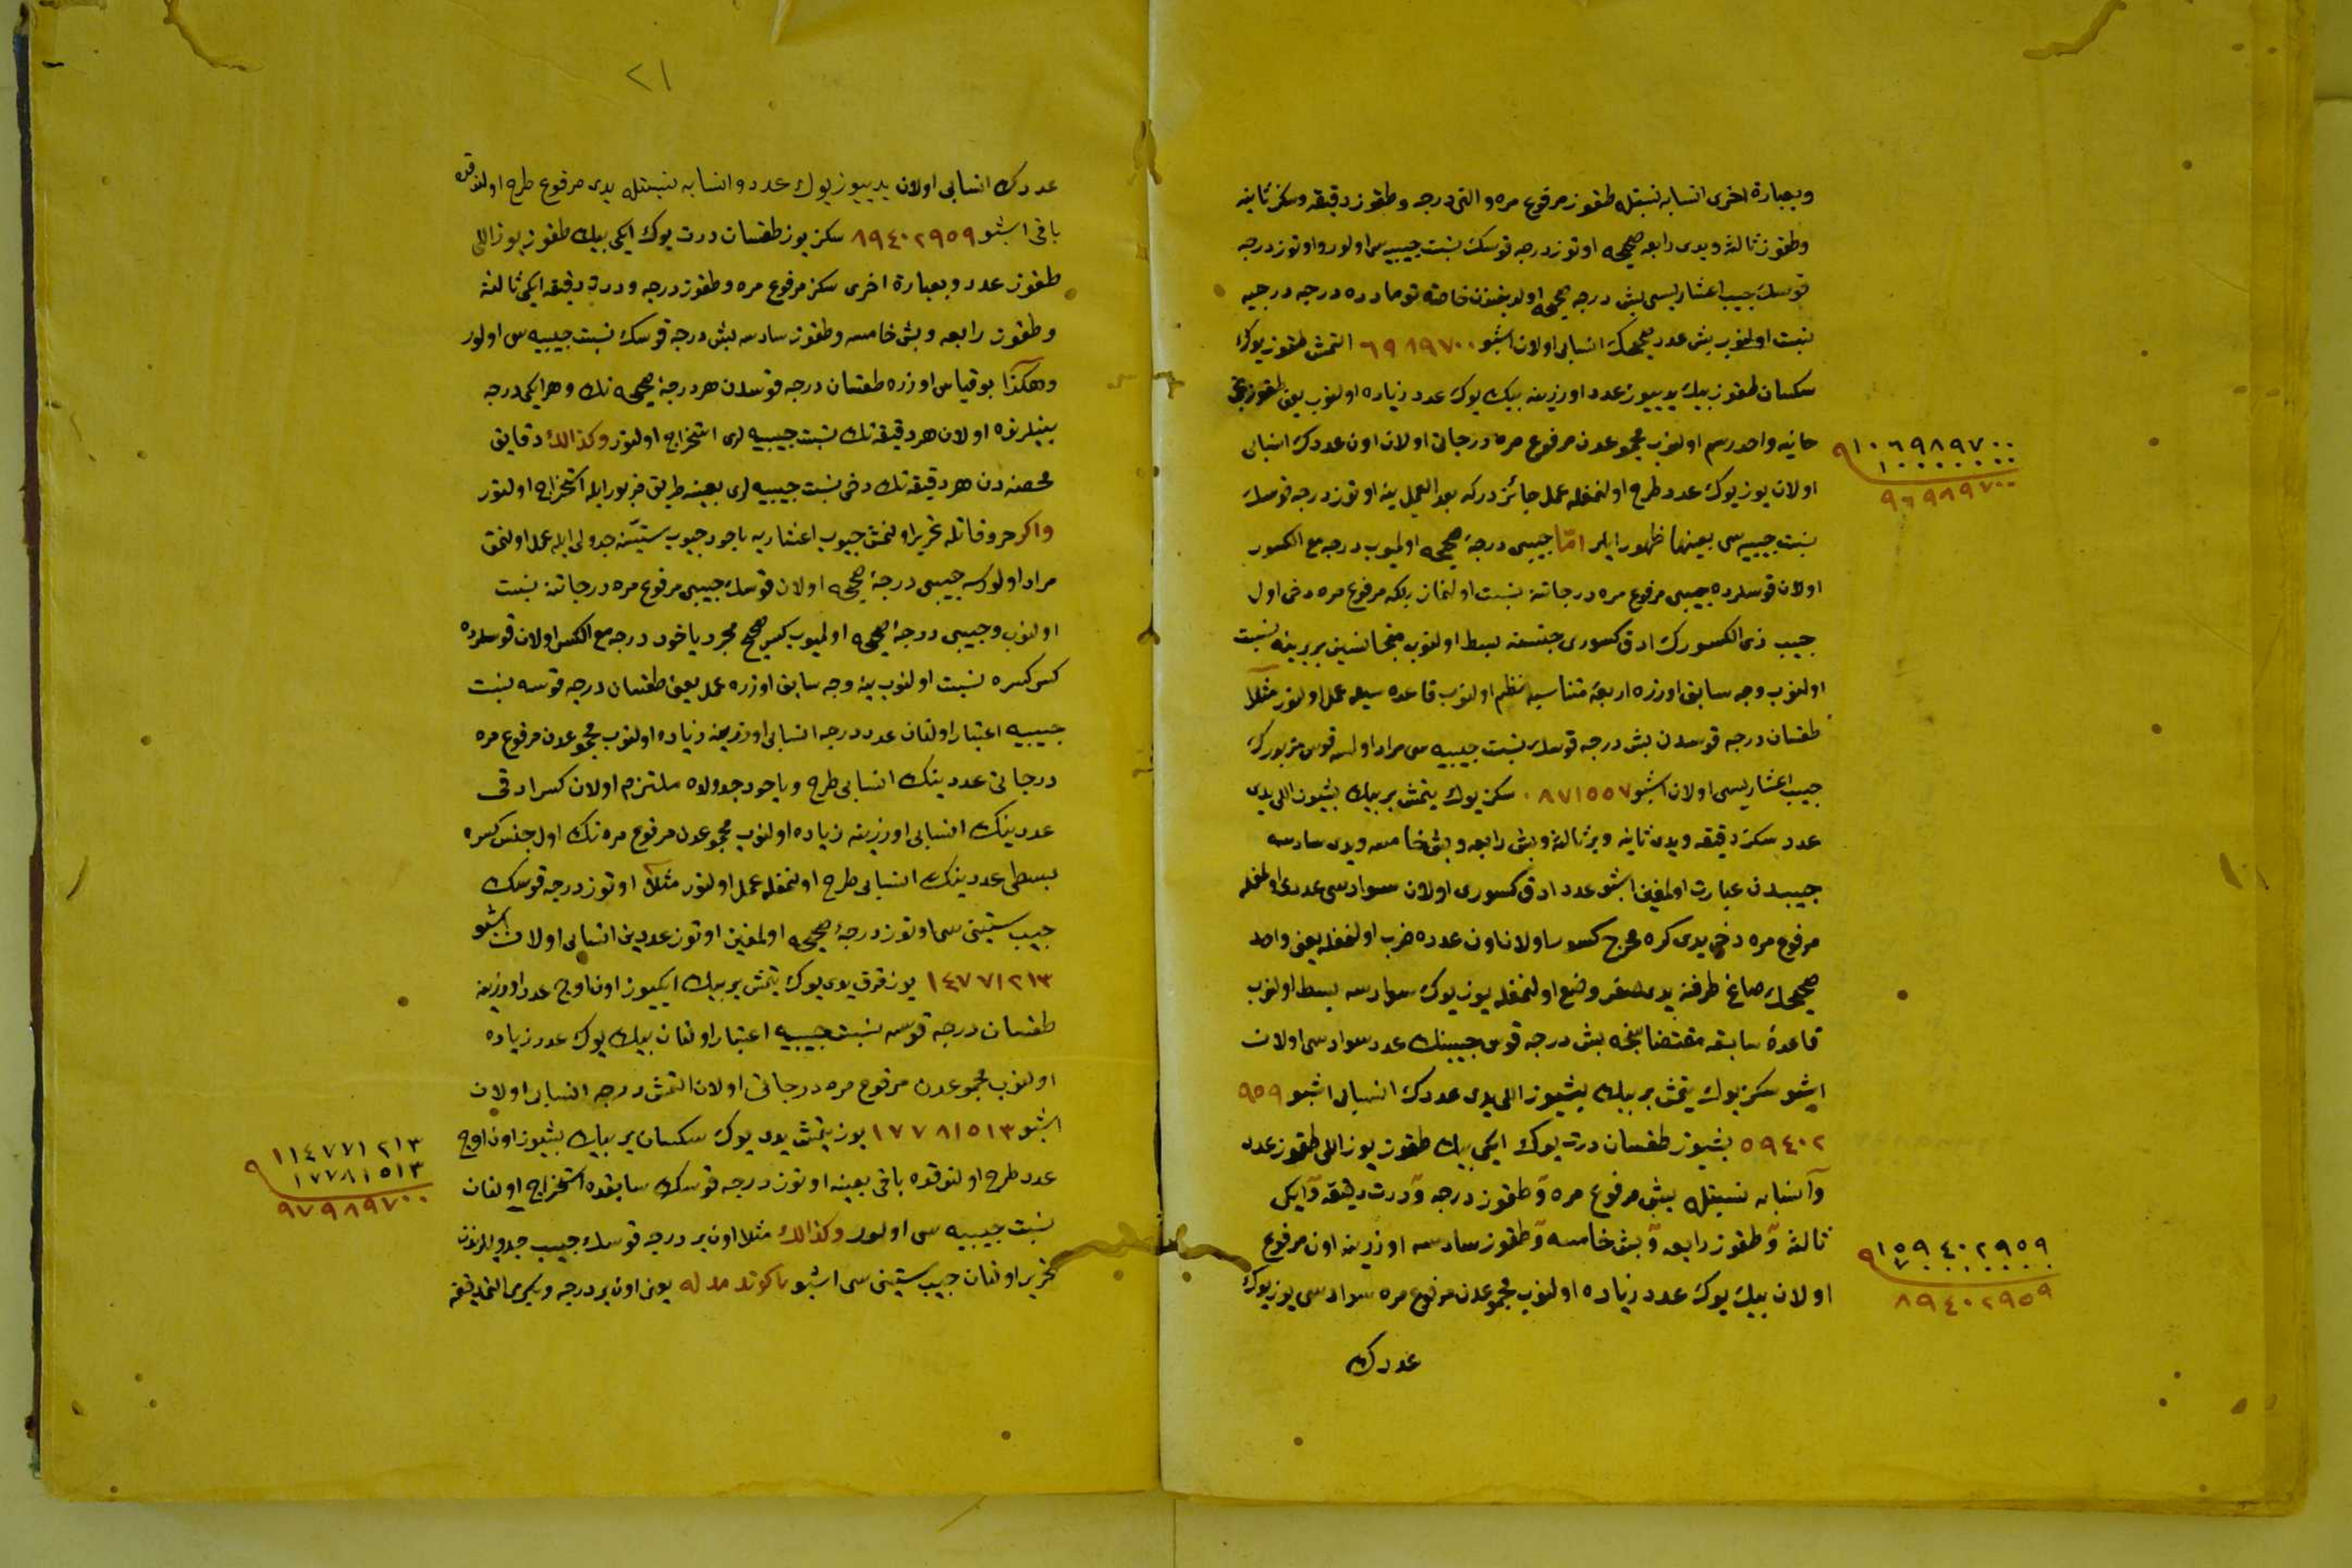 وبعبارة اخرى انسابه نسبتله طقوز مرفوع مره والتى درجه وطقوز دقيقه وسكز ثانيه
وطقوز ثالثه ويدى رابعه صحيحه اوتوز درجه قوسك نسبت جيبيه سى اولور واوتوز درجه
قوسك جيب اعشاريسى بش درجه صحيحه اولديغندن خاصةً درجه درجيه
نسبت اولنوب بش عدد صحيحك انسابى اولان اشبو ٦٩٨٩٧٠٠ التمش طقوز يوك
سكسان طقوز بيك يديوز عدد اوزرينه بيك يوك عدد زياده اولنوب يعنى طقوزنجى
خانيه واحد رسم اولنوب مجموعدن مرفوع مره درجاتى اولان اون عددك انسابى
اولان يوز يوك عدد طرح اولنمغله عمل جائزدركه بعد العمل ينه اوتوز درجه قوسك
نسبت جيبيه سى بعينها ظهور ايلر امّا جيبى درجۀ صحيحه اولميوب درجه مع الكسور
اولان قوسلرده جيبى مرفوع مره درجاتنه نسبت اولنماز بلكه مرفوع مره دخى اول
جيب ذى الكسورك ادق كسورى جنسنه بسط اولنوب متجانسين بربرينه نسبت
اولنوب وجه سابق اوزره اربعۀ متناسبه نظم اولنوب قاعده سيله عمل اولنور مثلا
طقسان درجه قوسدن بش درجه قوسك نسبت جيبيه سى مراد اولسه قوس مزبورك
جيب اعشاريسى اولان اشبو ٠٨٧١٥٥٧ سكز يوك يتمش بر بيك بشيوز اللى يدى
عدد سكز دقيقه ويدى ثانيه وبر ثالثه وبش رابعه وبش خامسه ويدى سادسه
جيبدن عبارت اولمغين اشبو عدد ادق كسورى اولان سوادسى عددى اولمغله
مرفوع مره دخى يدى كره مخرج كسور اولان اون عدده ضرب اولنمغله يعنى واحد
صحيحك صاغ طرفنه يدى صفر وضع اولنمغله يوز يوك سوادسه بسط اولنوب
قاعدۀ سابقه مقتضاسنجه بش درجه قوس جيبنك عدد سوادسى اولان
اشبو سكز يوك يتمش بر بيك بشيوز اللى يدى عددك انسابى اشبو ٩٥٩
٥٩٤٠٢ بشيوز طقسان درت يوك ايكى بيك طقوز يوز اللى طقوز عدد
وانسابه نسبتله بش مرفوع مره و طقوز درجه و درت دقيقه و ايكى
ثالثه و طقوز رابعه و بش خامسه و طقوز سادسه اوزرينه اون مرفوع
اولان بيك يوك عدد زياده اولنوب مجموعدن مرفوع مره سوادسى يوز يوك
عددك
١٠٦٩٨٩٧٠٠ ٩
١٠٠٠٠٠٠٠٠
٩٦٩٨٩٧٠٠
١٥٩٤٠٢٩٥٩ ٩
٧٠٠٠٠٠٠٠
٨٩٤٠٢٩٥٩
٢١
عددك انسابى اولان يديوز يوك عدد وانسابه نسبتله يدى مرفوع طرح اولندقده
باقى اشبو ٨٩٤٠٢٩٥٩ سكز يوز طقسان درت يوك ايكى بيك طقوز يوز اللى
طقوز عدد وبعبارة اخرى سكز مرفوع مره وطقوز درجه ودرت دقيقه ايكى ثالثه
وطقوز رابعه وبش خامسه وطقوز سادسه بش درجه قوسك نسبت جيبيه سى اولور
وهكذا بو قياس اوزره طقسان درجه قوسدن هر درجۀ صحيحه نك وهر ايكى درجه
بينلرنده اولان هر دقيقه نك نسبت جيبيه لرى استخراج اولنور وكذالك دقايق
محضه دن هر دقيقه نك دخى نسبت جيبيه لرى بعينه طريق مزبور ايله استخراج اولنور
واكر حروفاتله تحرير اولنمش جيوب اعشاريه ياخود جيوب ستينيه جدولى ايله عمل اولنمق
مراد اولورسه جيبى درجۀ صحيحه اولان قوسك جيبى مرفوع مره درجاتنه نسبت
اولنوب وجيبى درجۀ صحيحه اولميوب كسر صحيح مجرد ياخود درجه مع الكسر اولان قوسلرده
كسر كسره نسبت اولنوب ينه وجه سابق اوزره عمل يعنى طقسان درجه قوسه نسبت
جيبيه اعتبار اولنان عدد درجه انسابى اوزرينه زياده اولنوب مجموعدن مرفوع مره
درجاتى عددينك انسابى طرح وياخود جدولده ملتزم اولان كسر ادق
عددينك انسابى اوزرينه زياده اولنوب مجموعدن مرفوع مره نك اول جنس كسره
بسطى عددينك انسابى طرح اولنمغله عمل اولنور مثلا اوتوز درجه قوسك
جيب ستينى سى اوتوز درجۀ صحيحه اولمغين اوتوز عددين انسابى اولان اشبو
١٤٧٧١٢١٣ يوز قرق يدى يوك يتمش بر بيك ايكيوز اون اوچ عدد اوزرينه
طقسان درجه قوسه نسبت جيبيه اعتبار اولنان بيك يوك عدد زياده
اولنوب مجموعدن مرفوع مره درجاتى اولان التمش درجه انسابى اولان
اشبو ١٧٧٨١٥١٣ يوز يتمش يدى يوك سكسان بر بيك بشيوز اون اوچ
عدد طرح اولندقده باقى بعينه اوتوز درجه قوسك سابقده استخراج اولنان
نسبت جيبيه سى اولور وكذالك مثلا اون بر درجه قوسك جيب جدولندن
تحرير اولنان جيب ستينى سى اشبو يعنى اون بر درجه ويكرمى التى دقيقه
١١٤٧٧١٢١٣ ٩
١٧٧٨١٥١٣
٩٧٩٨٩٧٠٠